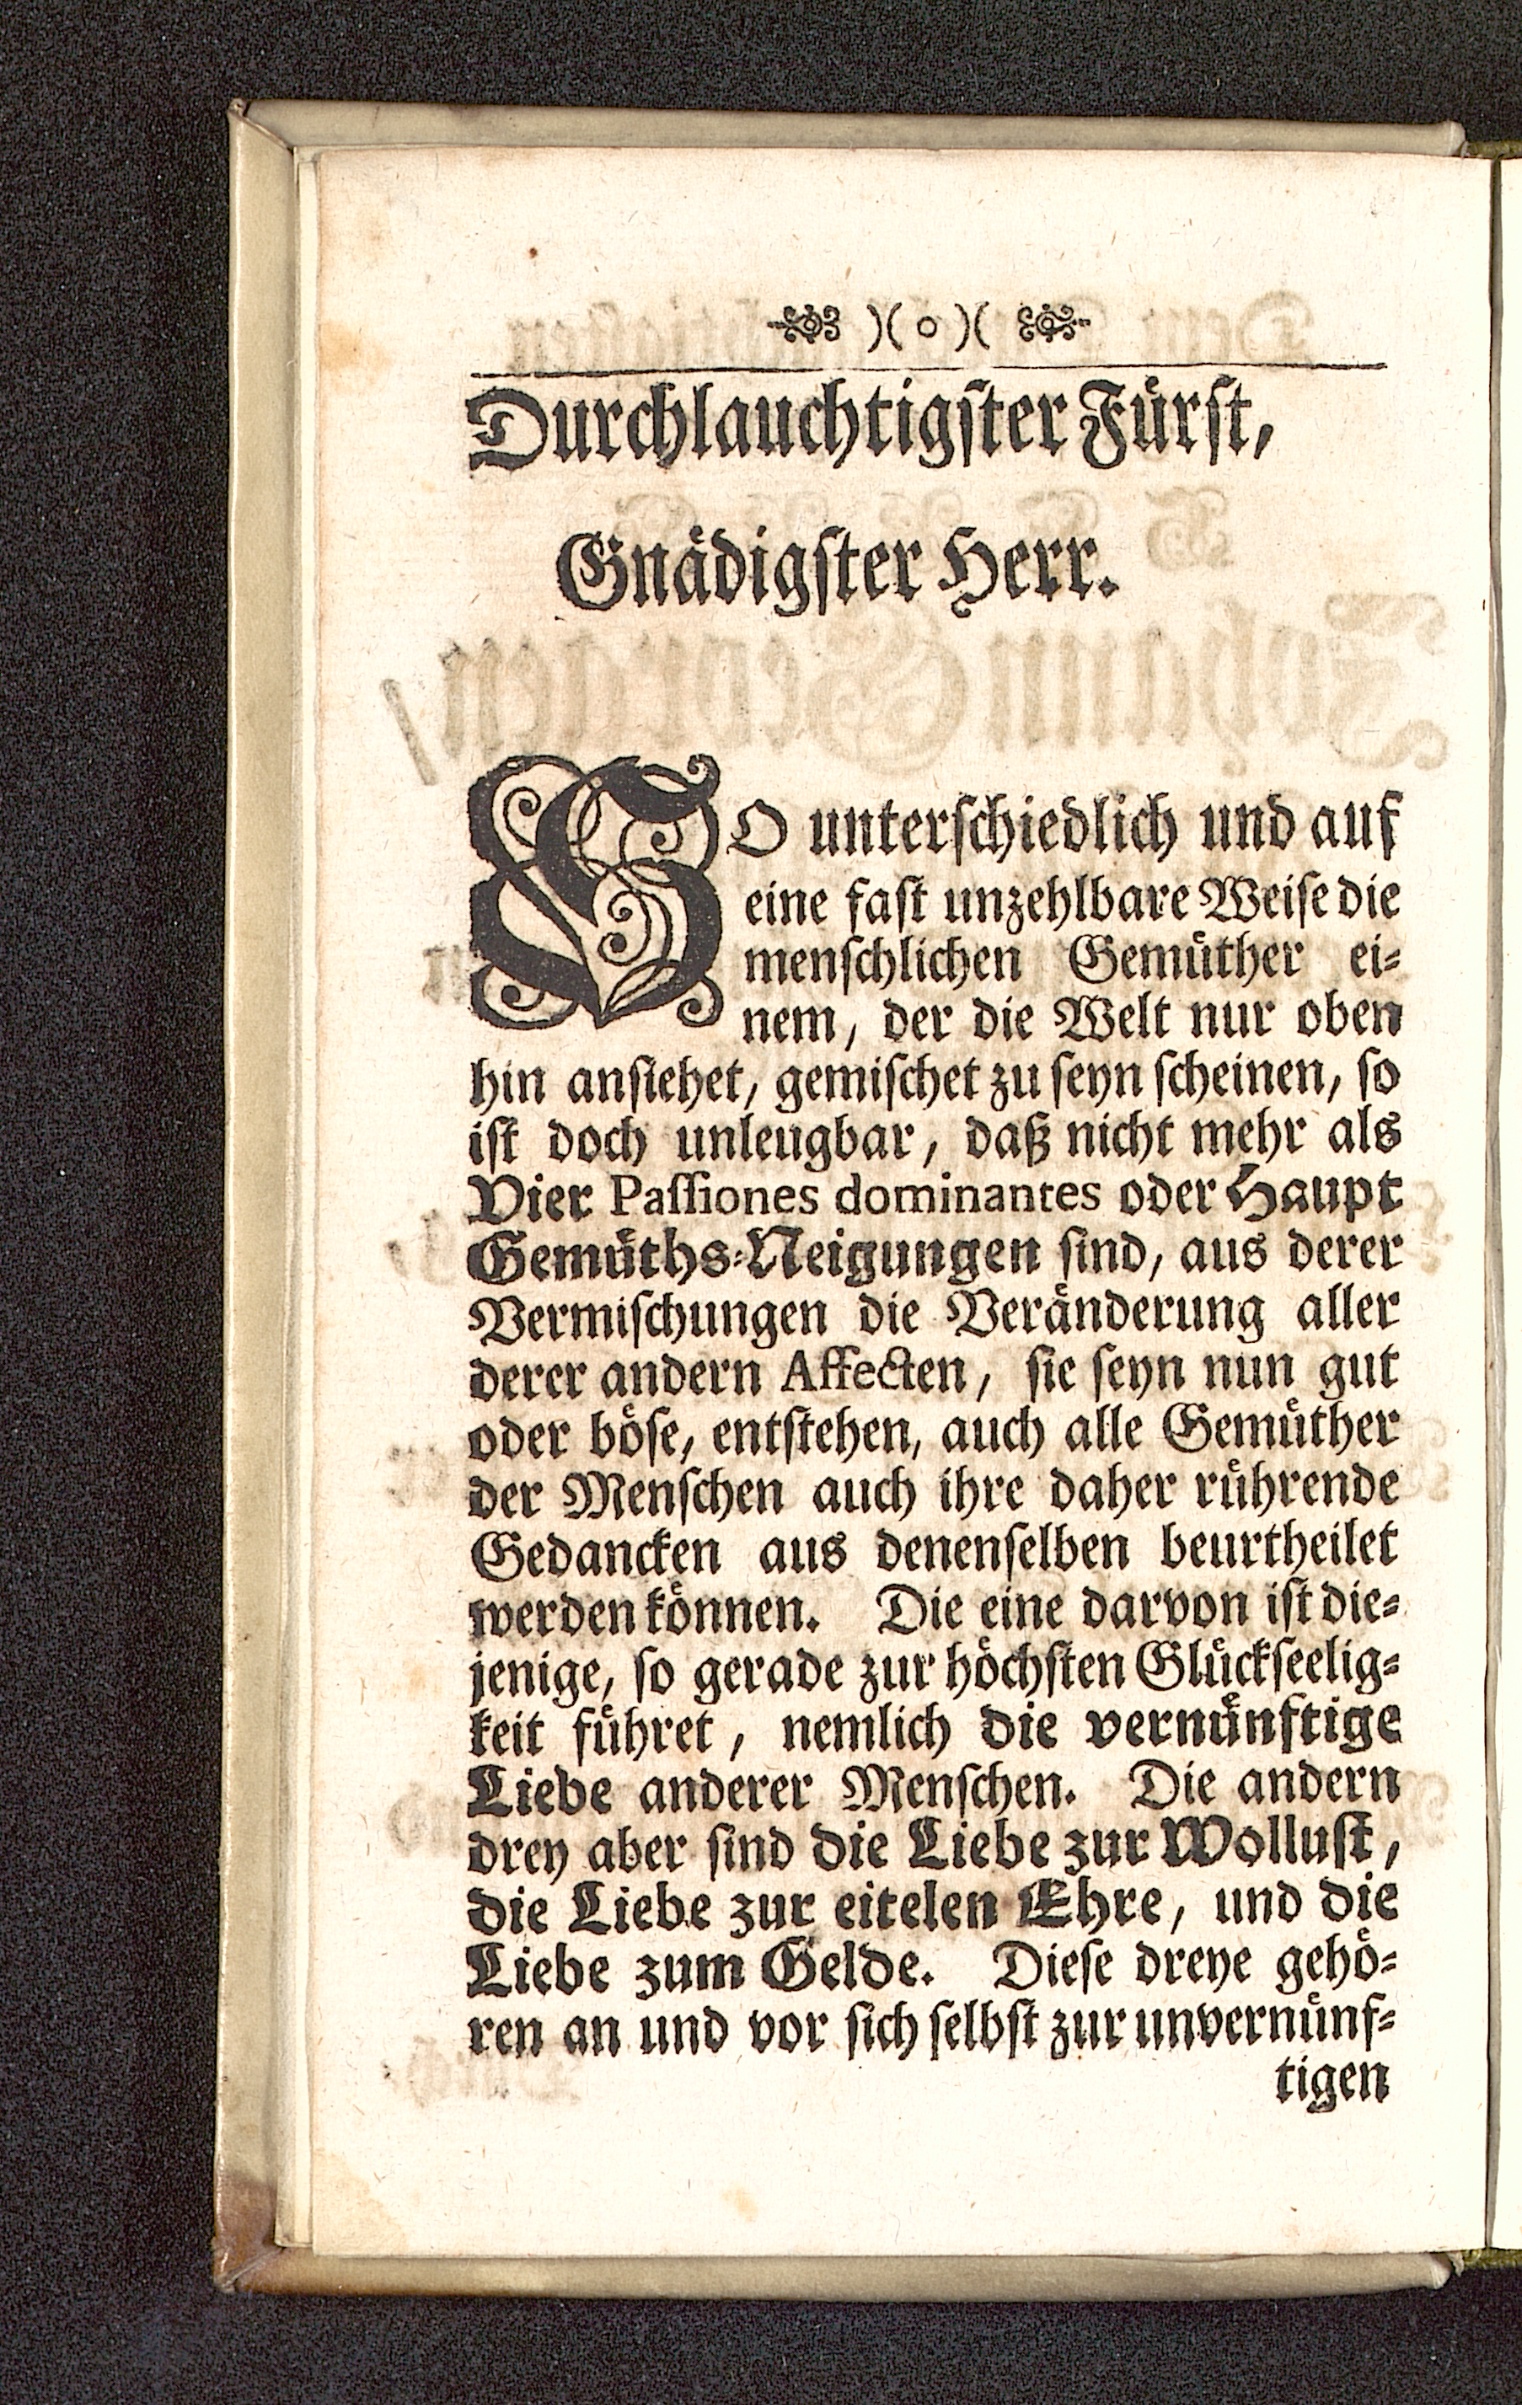 )( o )(
Durchlauchtigster Fürst,
Gnädigster Herr.
SO unterschiedlich und auf
eine fast unzehlbare Weise die
menschlichen Gemüther ei-
nem, der die Welt nur oben
hin ansiehet, gemischet zu seyn scheinen, so
ist doch unleugbar, daß nicht mehr als
Vier Passiones dominantes oder Haupt
Gemüths-Neigungen sind, aus derer
Vermischungen die Veränderung aller
derer andern Affecten, sie seyn nun gut
oder böse, entstehen, auch alle Gemüther
der Menschen auch ihre daher rührende
Gedancken aus denenselben beurtheilet
werden können. Die eine darvon ist die-
jenige, so gerade zur höchsten Glückseelig-
keit führet, nemlich die vernünftige
Liebe anderer Menschen. Die andern
drey aber sind die Liebe zur Wollust,
die Liebe zur eitelen Ehre, und die
Liebe zum Gelde. Diese dreye gehö-
ren an und vor sich selbst zur unvernünf-
tigen